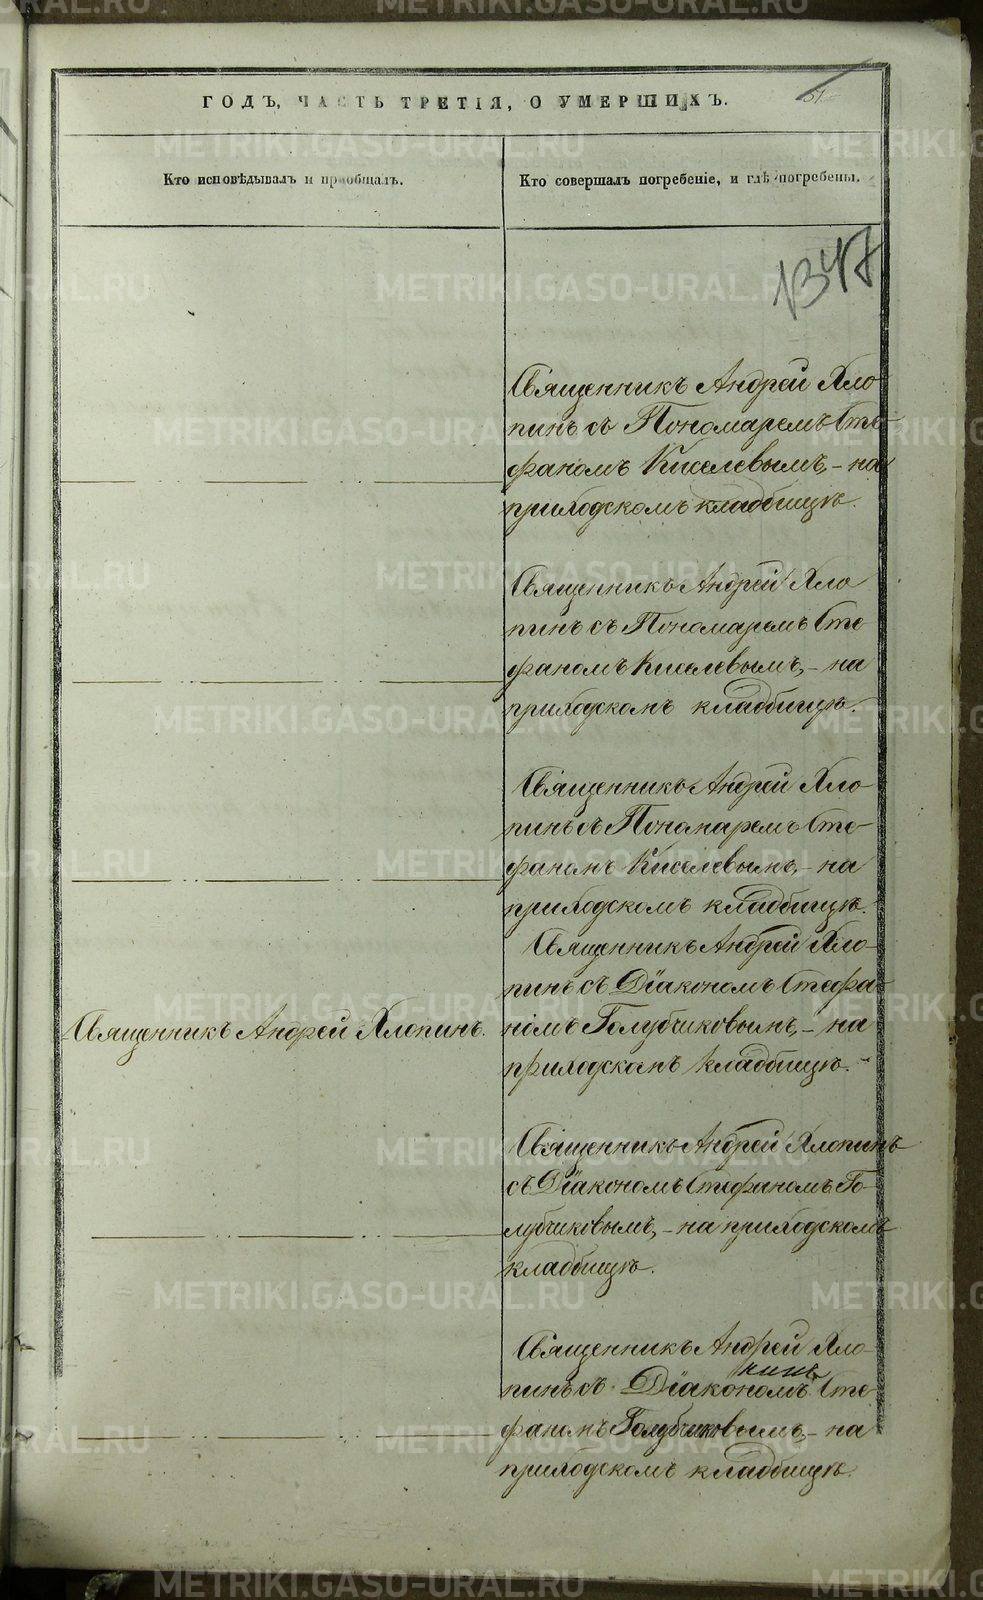 ГОДЪ, ЧАСТЬ ТРЕТІЯ, О УМЕРШИХЪ.
51
Кто исповѣдывалъ и пріобщалъ.
Кто совершалъ погребеніе, и гдѣ погребены.
1347
Священникъ Андрей Хло
пинъ съ Пономаремъ Сте-
фаномъ Киселевымъ, – на
приходскомъ кладбищѣ.
Священникъ Андрей Хло
пинъ съ Пономаремъ Сте-
фаномъ Киселевымъ, – на
приходскомъ кладбищѣ.
Священникъ Андрей Хло-
пинъ съ Пономаремъ Сте-
фаномъ Киселевымъ, – на
приходскомъ кладбищѣ.
Священникъ Андрей Хлопинъ.
Священникъ Андрей Хло-
пинъ съ Діакономъ Стефа-
номъ Голубчиковымъ, – на
приходскомъ кладбищѣ.
Священникъ Андрей Хлопинъ
съ Діакономъ Стефаномъ Го-
лубчиковымъ, – на приходскомъ
кладбищѣ.
Священникъ Андрей Хло-
пинъ
пинъ съ Діакономъ Сте-
фаномъ Голубчиковымъ, – на
приходскомъ кладбищѣ.
METRIKI.GASO-URAL.RU